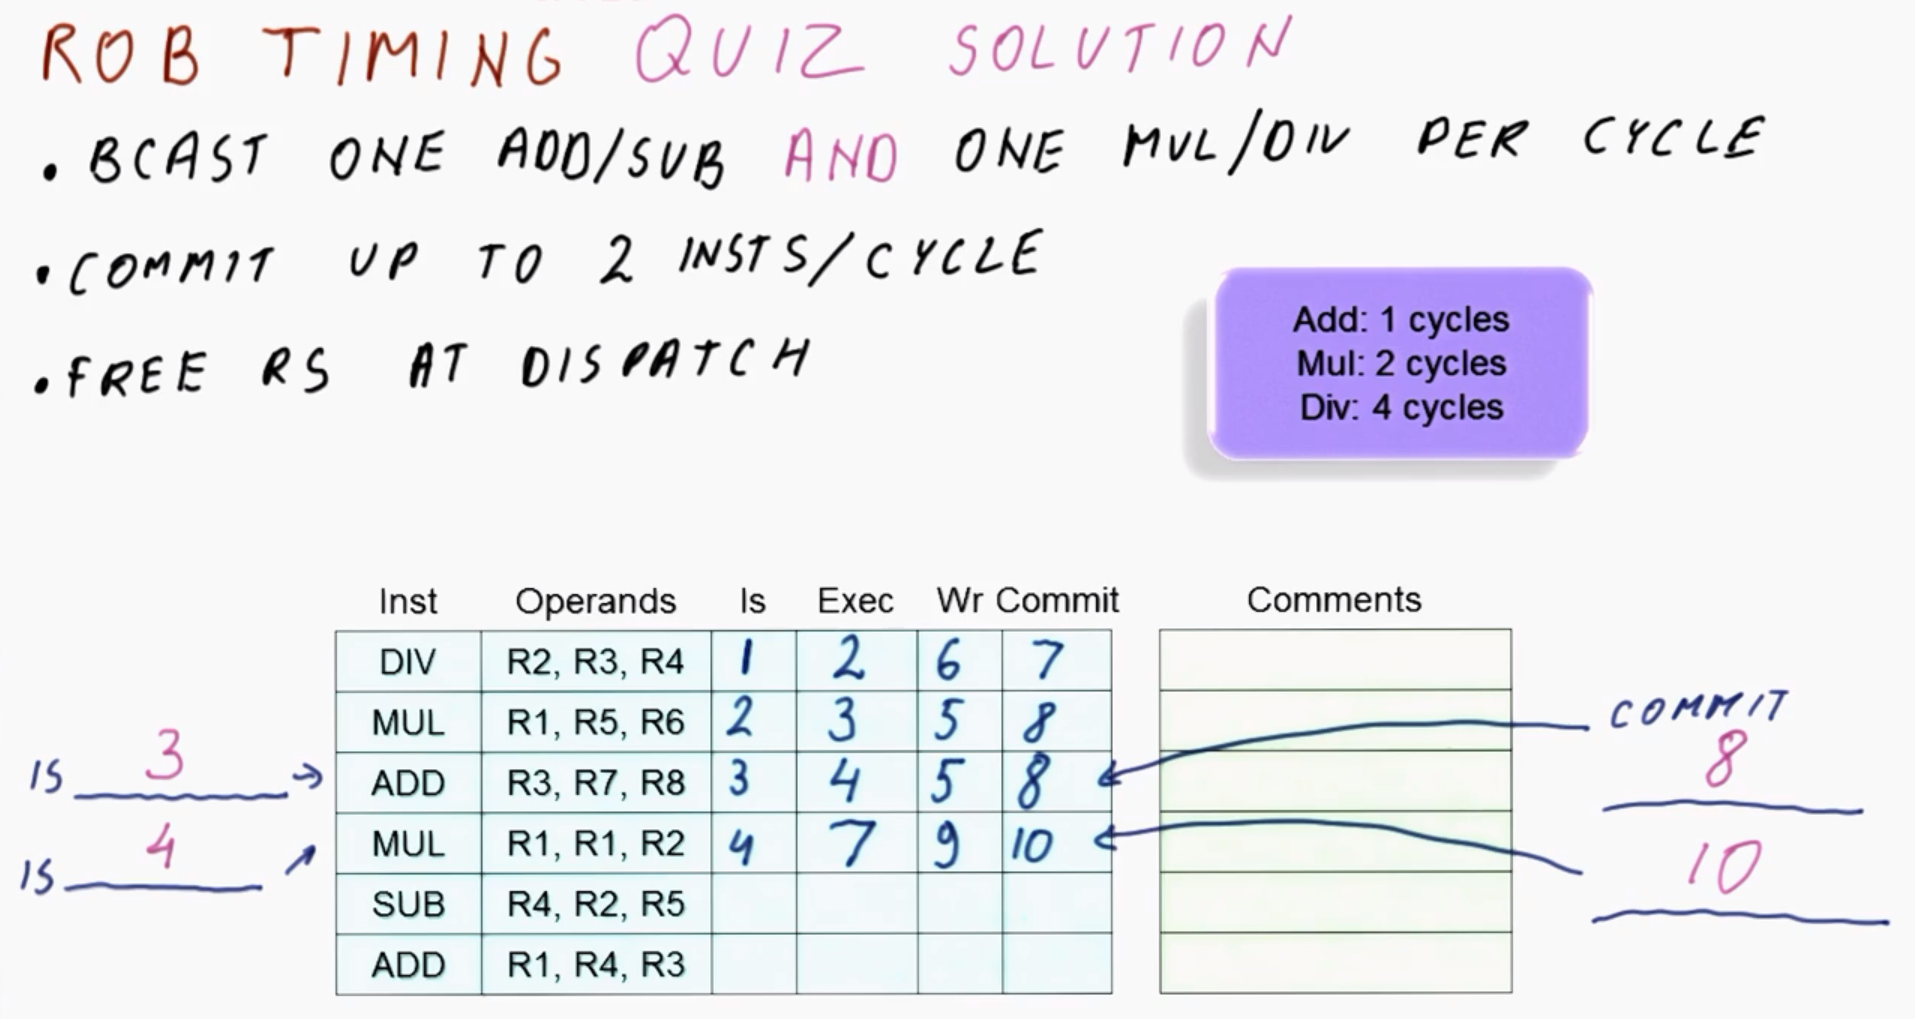 ROB TIMING QUIZ SOLUTION
• BCAST ONE ADD/SUB AND ONE MUL/DIV PER CYCLE
• COMMIT UP TO 2 INSTS/CYCLE
• FREE RS AT DISPATCH
Add: 1 cycles
Mul: 2 cycles
Div: 4 cycles
Inst Operands Is Exec Wr Commit Comments
DIV R2, R3, R4 1 2 6 7
MUL R1, R5, R6 2 3 5 8
COMMIT
IS 3 → ADD R3, R7, R8 3 4 5 8 8
IS 4 MUL R1, R1, R2 4 7 9 10 10
SUB R4, R2, R5
ADD R1, R4, R3